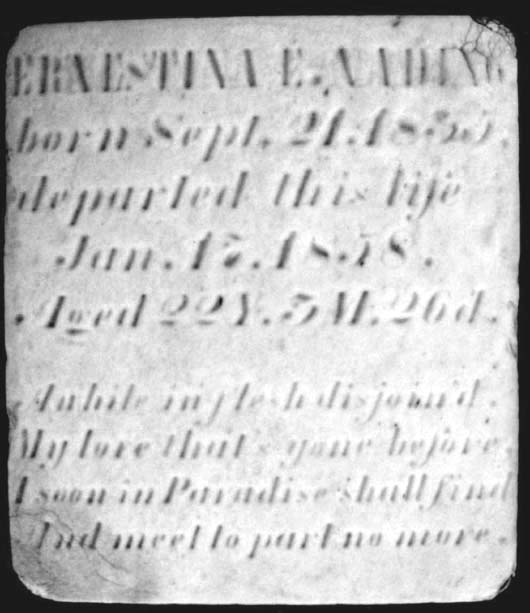 ERNESTINA E. NADING
born Sept. 21. 1835.
departed this life
Jan. 17. 1858.
Aged 22Y. 3M. 26d.
Awhile in flesh disjoin'd.
My love that's gone before,
I soon in Paradise shall find
And meet to part no more.